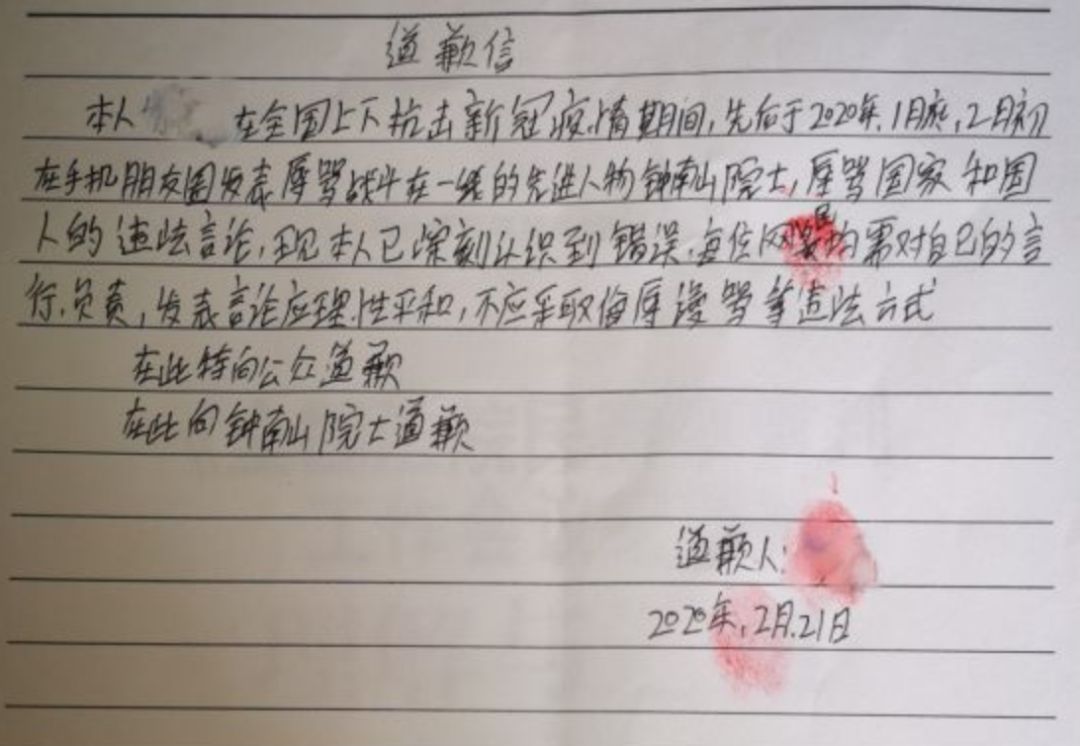 道歉信
本人 在全国上下抗击新冠疫情期间,先后于2020年.1月底,2月初
在手机朋友圈发表辱骂战斗在一线的先进人物钟南山院士,辱骂国家和国
人的违法言论,现本人已深刻认识到错误.每位网民均需对自己的言
行.负责,发表言论应理性平和,不应采取侮辱谩骂等违法方式
在此特向公众道歉
在此向钟南山院士道歉
道歉人:
2020年,2月.21日